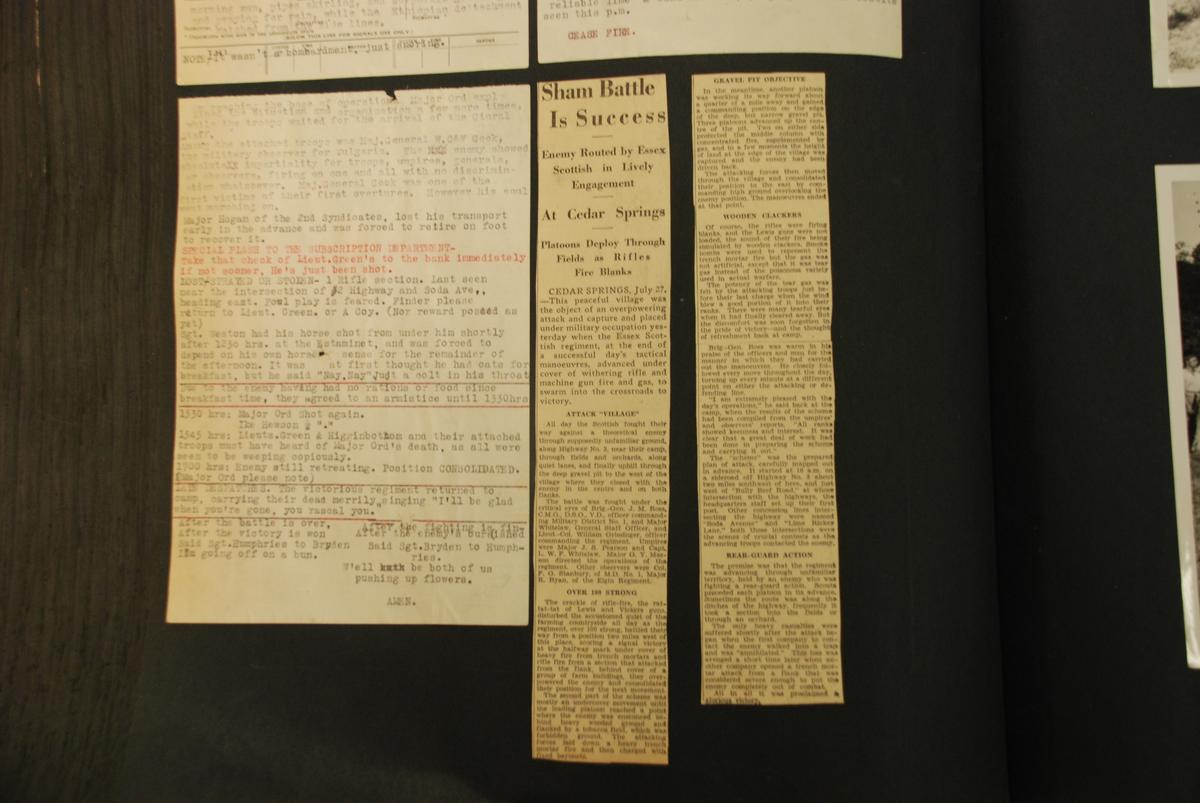 morning men, pipes skirling, and
and praying for rain, while the Ethiopian detachment
lines.
(BELOW THIS LINE FOR SIGNALS USE ONLY)
NOTE; It wasn't a bombardment, just snoring.
reliable
seen this p.m.
CEASE FIRE.
the base of operations Major Ord
the situation and organization a few more times,
while the troops waited for the arrival of the
Staff.
the attached troops was Maj.General W.C&W Cook,
military observer for Vulgaria. The enemy showed
impartiality for troops, umpires, generals,
observers, firing on one and all with no discrimin-
ation whatsoever. Maj.General Cook was one of the
first victims of their first overtures. However his soul
went marching on.
Major Hogan of the 2nd Syndicates, lost his transport
early in the advance and was forced to retire on foot
to recover it.
SPECIAL FLASH TO THE SUBSCRIPTION DEPARTMENT-
Take that check of Lieut.Green's to the bank immediately
if not sooner, He's just been shot.
LOST-STRAYED OR STOLEN- 1 Rifle section. Last seen
near the intersection of #2 Highway and Soda Ave,,
heading east. Foul play is feared. Finder please
return to Lieut. Green. or A Coy. (Nor reward posted as
yet)
Sgt. Weston had his horse shot from under him shortly
after 1230 hrs. at the Estaminet, and was forced to
depend on his own horse sense for the remainder of
the afternoon. It was at first thought he had oats for
breakfast, but he said "Nay,Nay"Just a colt in his throat
the enemy having had no rations or food since
breakfast time, they agreed to an armistice until 1330hrs
1330 hrs: Major Ord Shot again.
Ike Hewson & "."
1345 hrs: Lieuts.Green & Higginbottom and their attached
troops must have heard of Major Ord's death, as all were
seen to be weeping copiously.
1500 hrs: Enemy still retreating. Position CONSOLIDATED.
(Major Ord please note)
DESPATCHES. The victorious regiment returned to
camp, carrying their dead merrily singing "I'll be glad
when you're gone, you rascal you.
After the battle is over,
After the victory is won
Said Sgt.Humphries to Bryden
I'm going off on a bun.
After the fighting is fin-
After the enemy's burnished
Said Sgt.Bryden to Humph-
ries.
W'ell be both of us
pushing up flowers.
AMEN.
Sham Battle
Is Success
Enemy Routed by Essex
Scottish in Lively
Engagement
At Cedar Springs
Platoons Deploy Through
Fields as Rifles
Fire Blanks
CEDAR SPRINGS, July 27.
—This peaceful village was
the object of an overpowering
attack and capture and placed
under military occupation yes-
terday when the Essex Scot-
tish regiment, at the end of
a successful day's tactical
manoeuvres, advanced under
cover of withering rifle and
machine gun fire and gas, to
swarm into the crossroads to
victory.
ATTACK "VILLAGE"
All day the Scottish fought their
way against a theoretical enemy
through supposedly unfamiliar ground,
along Highway No. 3, near their camp,
through fields and orchards, along
quiet lanes, and finally uphill through
the deep gravel pit to the west of the
village where they closed with the
enemy in the centre and on both
flanks.
The battle was fought under the
critical eyes of Brig.-Gen. J. M. Ross,
C.M.G., D.S.O., V.D., officer command-
ing Military District No. 1, and Major
Whitelaw, General Staff Officer, and
Lieut.-Col. William Griesinger, officer
commanding the regiment. Umpires
were Major J. S. Pearson and Capt.
L. W. F. Whitelaw. Major O. Y.
directed the operations of the
regiment. Other observers were Col.
F. O. Stanbury, of M.D. No. 1, Major
R. Ryan, of the Elgin Regiment.
OVER 100 STRONG
The crackle of rifle-fire, the rat-
tat-tat of Lewis and Vickers guns,
disturbed the accustomed quiet of the
farming countryside all day as the
regiment, over 100 strong, battled their
way from a position two miles west of
this place, scoring a signal victory
at the halfway mark under cover of
heavy fire from trench mortars and
rifle fire from a section that attacked
from the flank, behind cover of a
group of farm buildings, they over-
powered the enemy and consolidated
their position for the next movement.
The second part of the scheme was
mostly an undercover movement until
the leading platoon reached a point
where the enemy was ensconced be-
hind heavy wooded ground and
flanked by a tobacco field, which was
forbidden ground. The attacking
forces laid down a heavy trench
mortar fire and then charged with
fixed bayonets.
GRAVEL PIT OBJECTIVE
In the meantime, another platoon
was working its way forward about
a quarter of a mile away and gained
a commanding position on the edge
of the deep, but narrow gravel pit.
Three platoons advanced up the cen-
tre of the pit. Two on either side
protected the middle column with
concentrated fire, supplemented by
gas, and in a few moments the height
of land at the edge of the village was
captured and the enemy had been
driven back.
The attacking forces then moved
through the village and consolidated
their position to the east by com-
manding high ground overlooking the
enemy position. The manoeuvres ended
at that point.
WOODEN CLACKERS
Of course, the rifles were firing
blanks, and the Lewis guns were not
loaded, the sound of their fire being
simulated by wooden clackers. Smoke
bombs were used to represent the
trench mortar fire but the gas was
not artificial, except that it was tear
gas instead of the poisonous variety
used in actual warfare.
The potency of the tear gas was
felt by the attacking troops just be-
fore their last charge when the wind
blew a good portion of it into their
ranks. There were many tearful eyes
when it had finally cleared away. But
the discomfort was soon forgotten in
the pride of victory—and the thought
of refreshment back at camp.
Brig.-Gen. Ross was warm in his
praise of the officers and men for the
manner in which they had carried
out the manoeuvres. He closely fol-
lowed every move throughout the day,
turning up every minute at a different
point on either the attacking or de-
fending line.
"I am extremely pleased with the
day's operations," he said back at the
camp, when the results of the scheme
had been compiled from the umpires'
and observers' reports. "All ranks
showed keenness and interest. It was
clear that a great deal of work had
been done in preparing the scheme
and carrying it out."
The "scheme" was the prepared
plan of attack, carefully mapped out
in advance. It started at 10 a.m. on
a sideroad off Highway No. 3 about
two miles southwest of here, and just
west of "Bully Beef Road," at whose
intersection with the highways, the
headquarters staff set up their first
post. Other concession lines inter-
secting the highway were named
"Soda Avenue" and "Lime Rickey
Lane," both these intersections were
the scenes of crucial contests as the
advancing troops contacted the enemy.
REAR-GUARD ACTION
The premise was that the regiment
was advancing through unfamiliar
territory, held by an enemy who was
fighting a rear-guard action. Scouts
preceded each platoon in its advance.
Sometimes the route was along the
ditches of the highway, frequently it
took a section into the fields or
through an orchard.
The only heavy casualties were
suffered shortly after the attack be-
gan when the first company to con-
tact the enemy walked into a trap
and was "annihilated." This loss was
avenged a short time later when an-
other company opened a trench mor-
tar attack from a flank that was
considered severe enough to put the
enemy completely out of combat.
All in all it was proclaimed a
glorious victory.